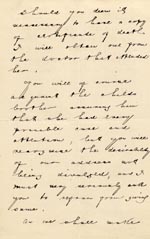 Should you deem it
necessary to have a copy
of certificate of death
I will obtain one from
the doctor that attended
her,
You will of course
acquaint the childs
brother assuring him
that she had every
possible care and
attention, but you will
recognise the desirability
of our address not
being divulged, and I
must very seriously ask
you to refrain from giving
same,
as we shall